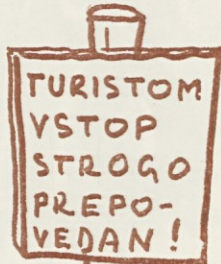 TURISTOM
VSTOP
STROGO
PREPO-
VEDAN!